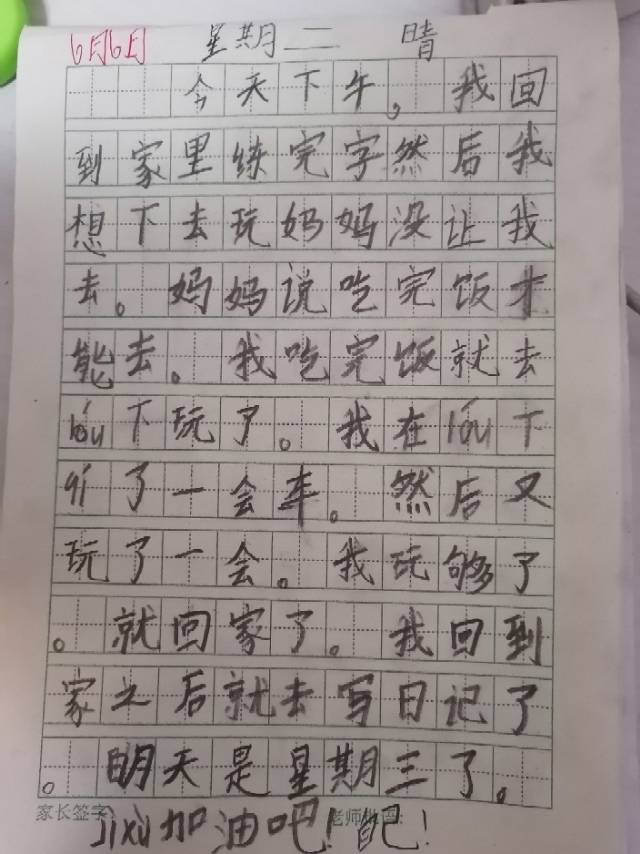 6月6月 星期二 晴
今天下午,我回
到家里练完字然后我
想下去玩妈妈没让我
去。妈妈说吃完饭才
能去。我吃完饭就去
lóu下玩了。我在lóu下
qí了一会车。然后又
玩了一会。我玩够了
。就回家了。我回到
家之后就去写日记了
。明天是星期三了。
家长签字: 老师批语:
Jixù加油吧!自己!